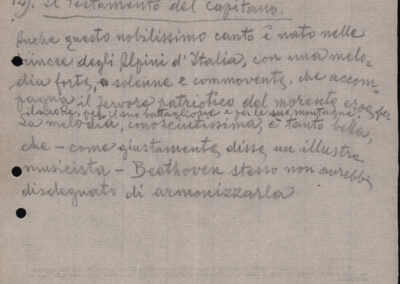 Il Testamento del Capitano.
Anche questo nobilissimo canto è nato nelle
trincee degli Alpini d'Italia, con una melo-
dia forte, solenne e commovente, che accom-
pagna il fervore patriotico del morente eroe per
il suo Re, per il suo battaglione e per le sue montagne.
La melodia, conosciutissima, è tanto bella,
che - come giustamente disse un illustre
musicista - Beethoven stesso non avrebbe
disdegnato di armonizzarla